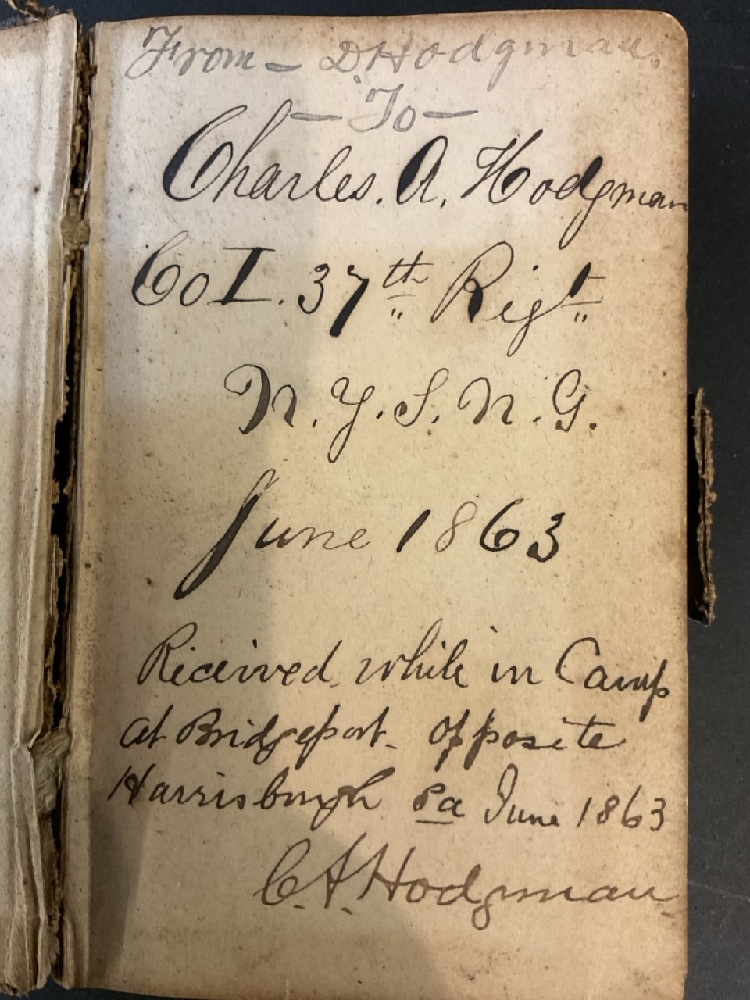 From – D Hodgman.
– To –
Charles. A. Hodgman
Co I. 37th Rigt
N. Y. S. N. G.
June 1863
Received while in Camp
at Bridgeport. opposite
Harrisburgh Pa June 1863
C. A. Hodgman